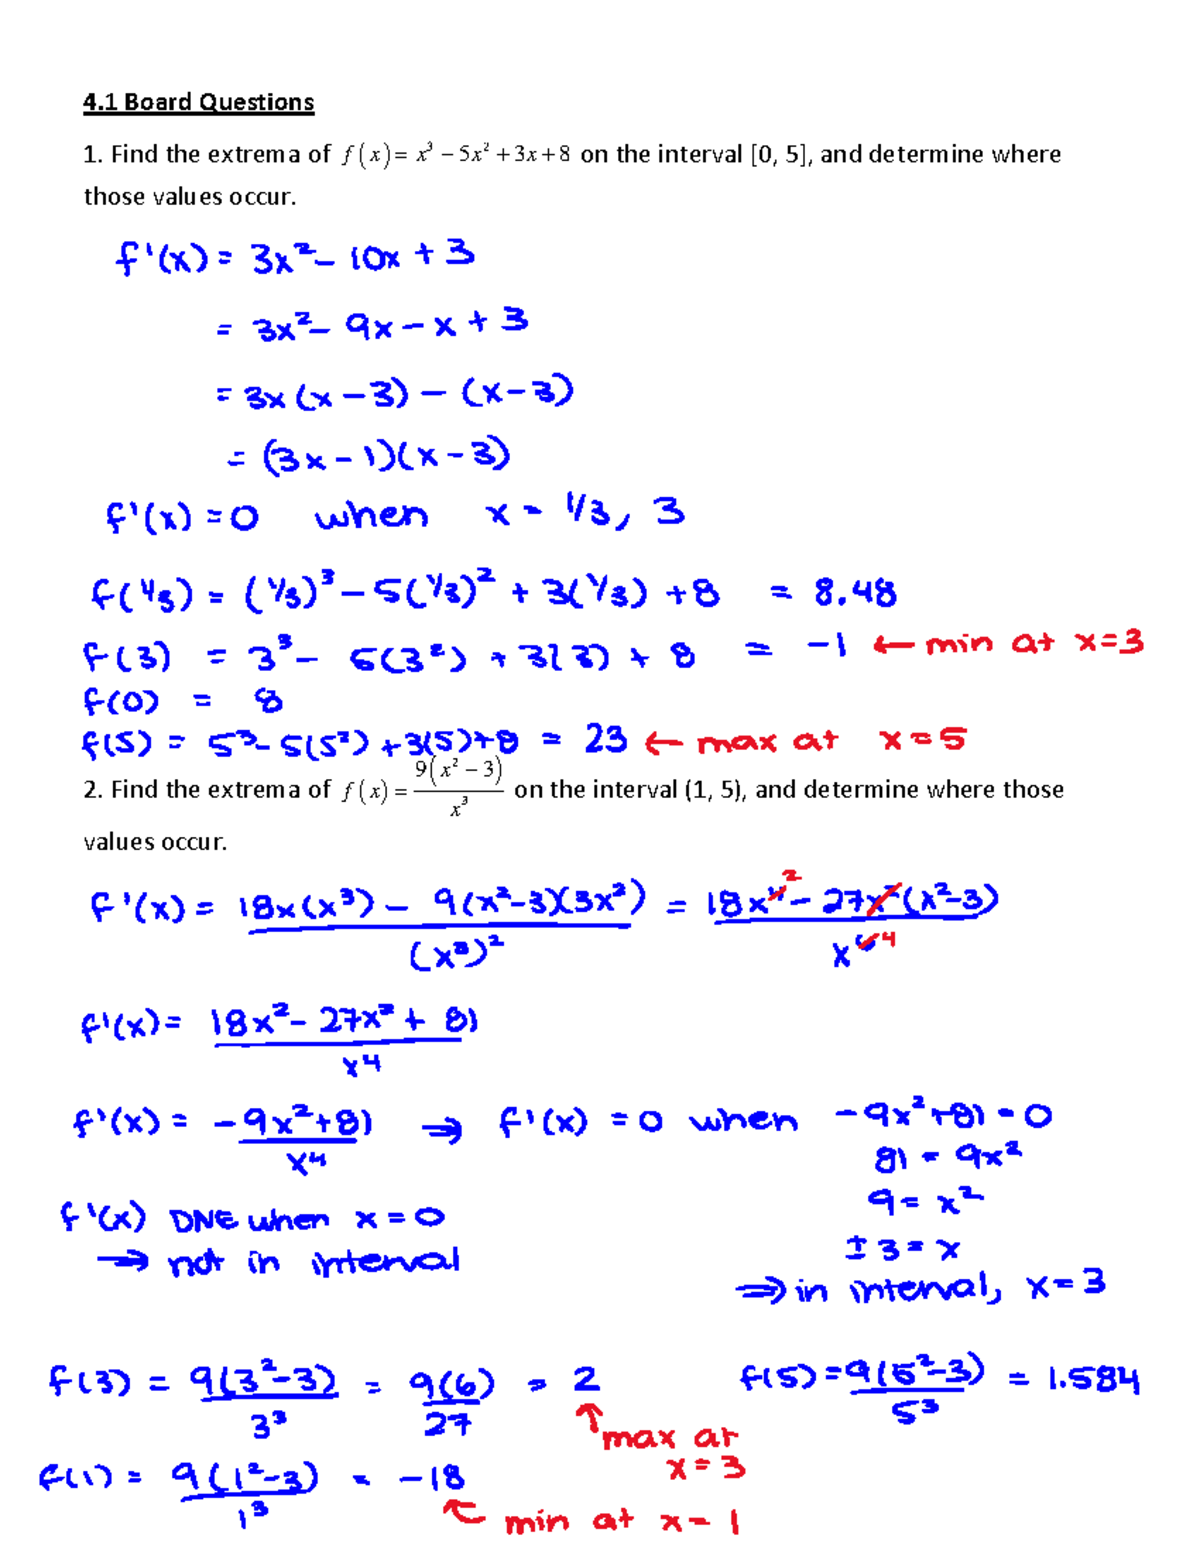 4.1 Board Questions
1. Find the extrema of f(x) = x³ − 5x² + 3x + 8 on the interval [0, 5], and determine where
those values occur.
f'(x) = 3x² − 10x + 3
= 3x² − 9x − x + 3
= 3x(x − 3) − (x − 3)
= (3x − 1)(x − 3)
f'(x) = 0 when x = 1/3, 3
f(1/3) = (1/3)³ − 5(1/3)² + 3(1/3) + 8 = 8.48
f(3) = 3³ − 5(3²) + 3(3) + 8 = −1 ← min at x=3
f(0) = 8
f(5) = 5³ − 5(5²) + 3(5) + 8 = 23 ← max at x=5
2. Find the extrema of f(x) = 9(x² − 3)/x³ on the interval (1, 5), and determine where those
values occur.
f'(x) = (18x(x³) − 9(x²−3)(3x²))/(x³)² = (18x⁴ ² − 27x²(x²−3))/x⁶ ⁴
f'(x) = (18x² − 27x² + 81)/x⁴
f'(x) = (−9x² + 81)/x⁴ ⇒ f'(x) = 0 when −9x² + 81 = 0
81 = 9x²
9 = x²
± 3 = x
⇒ in interval, x = 3
f'(x) DNE when x = 0
⇒ not in interval
f(3) = 9(3²−3)/3³ = 9(6)/27 = 2
↑ max at
x = 3
f(5) = 9(5²−3)/5³ = 1.584
f(1) = 9(1²−3)/1³ = −18
↖ min at x = 1